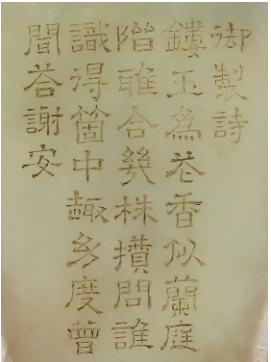 御製詩
鏤玉為芝香似蘭庭
階雅合幾株攢問誰
識得箇中趣幼度曾
聞荅謝安